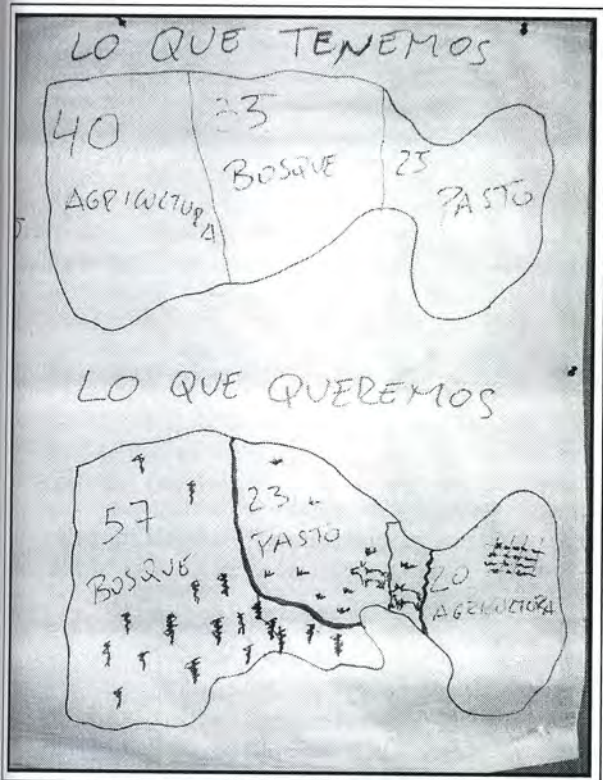 LO QUE TENEMOS
40
AGRICULTURA
BOSQUE
PASTO
LO QUE QUEREMOS
57
BOSQUE
23
PASTO
20
AGRICULTURA